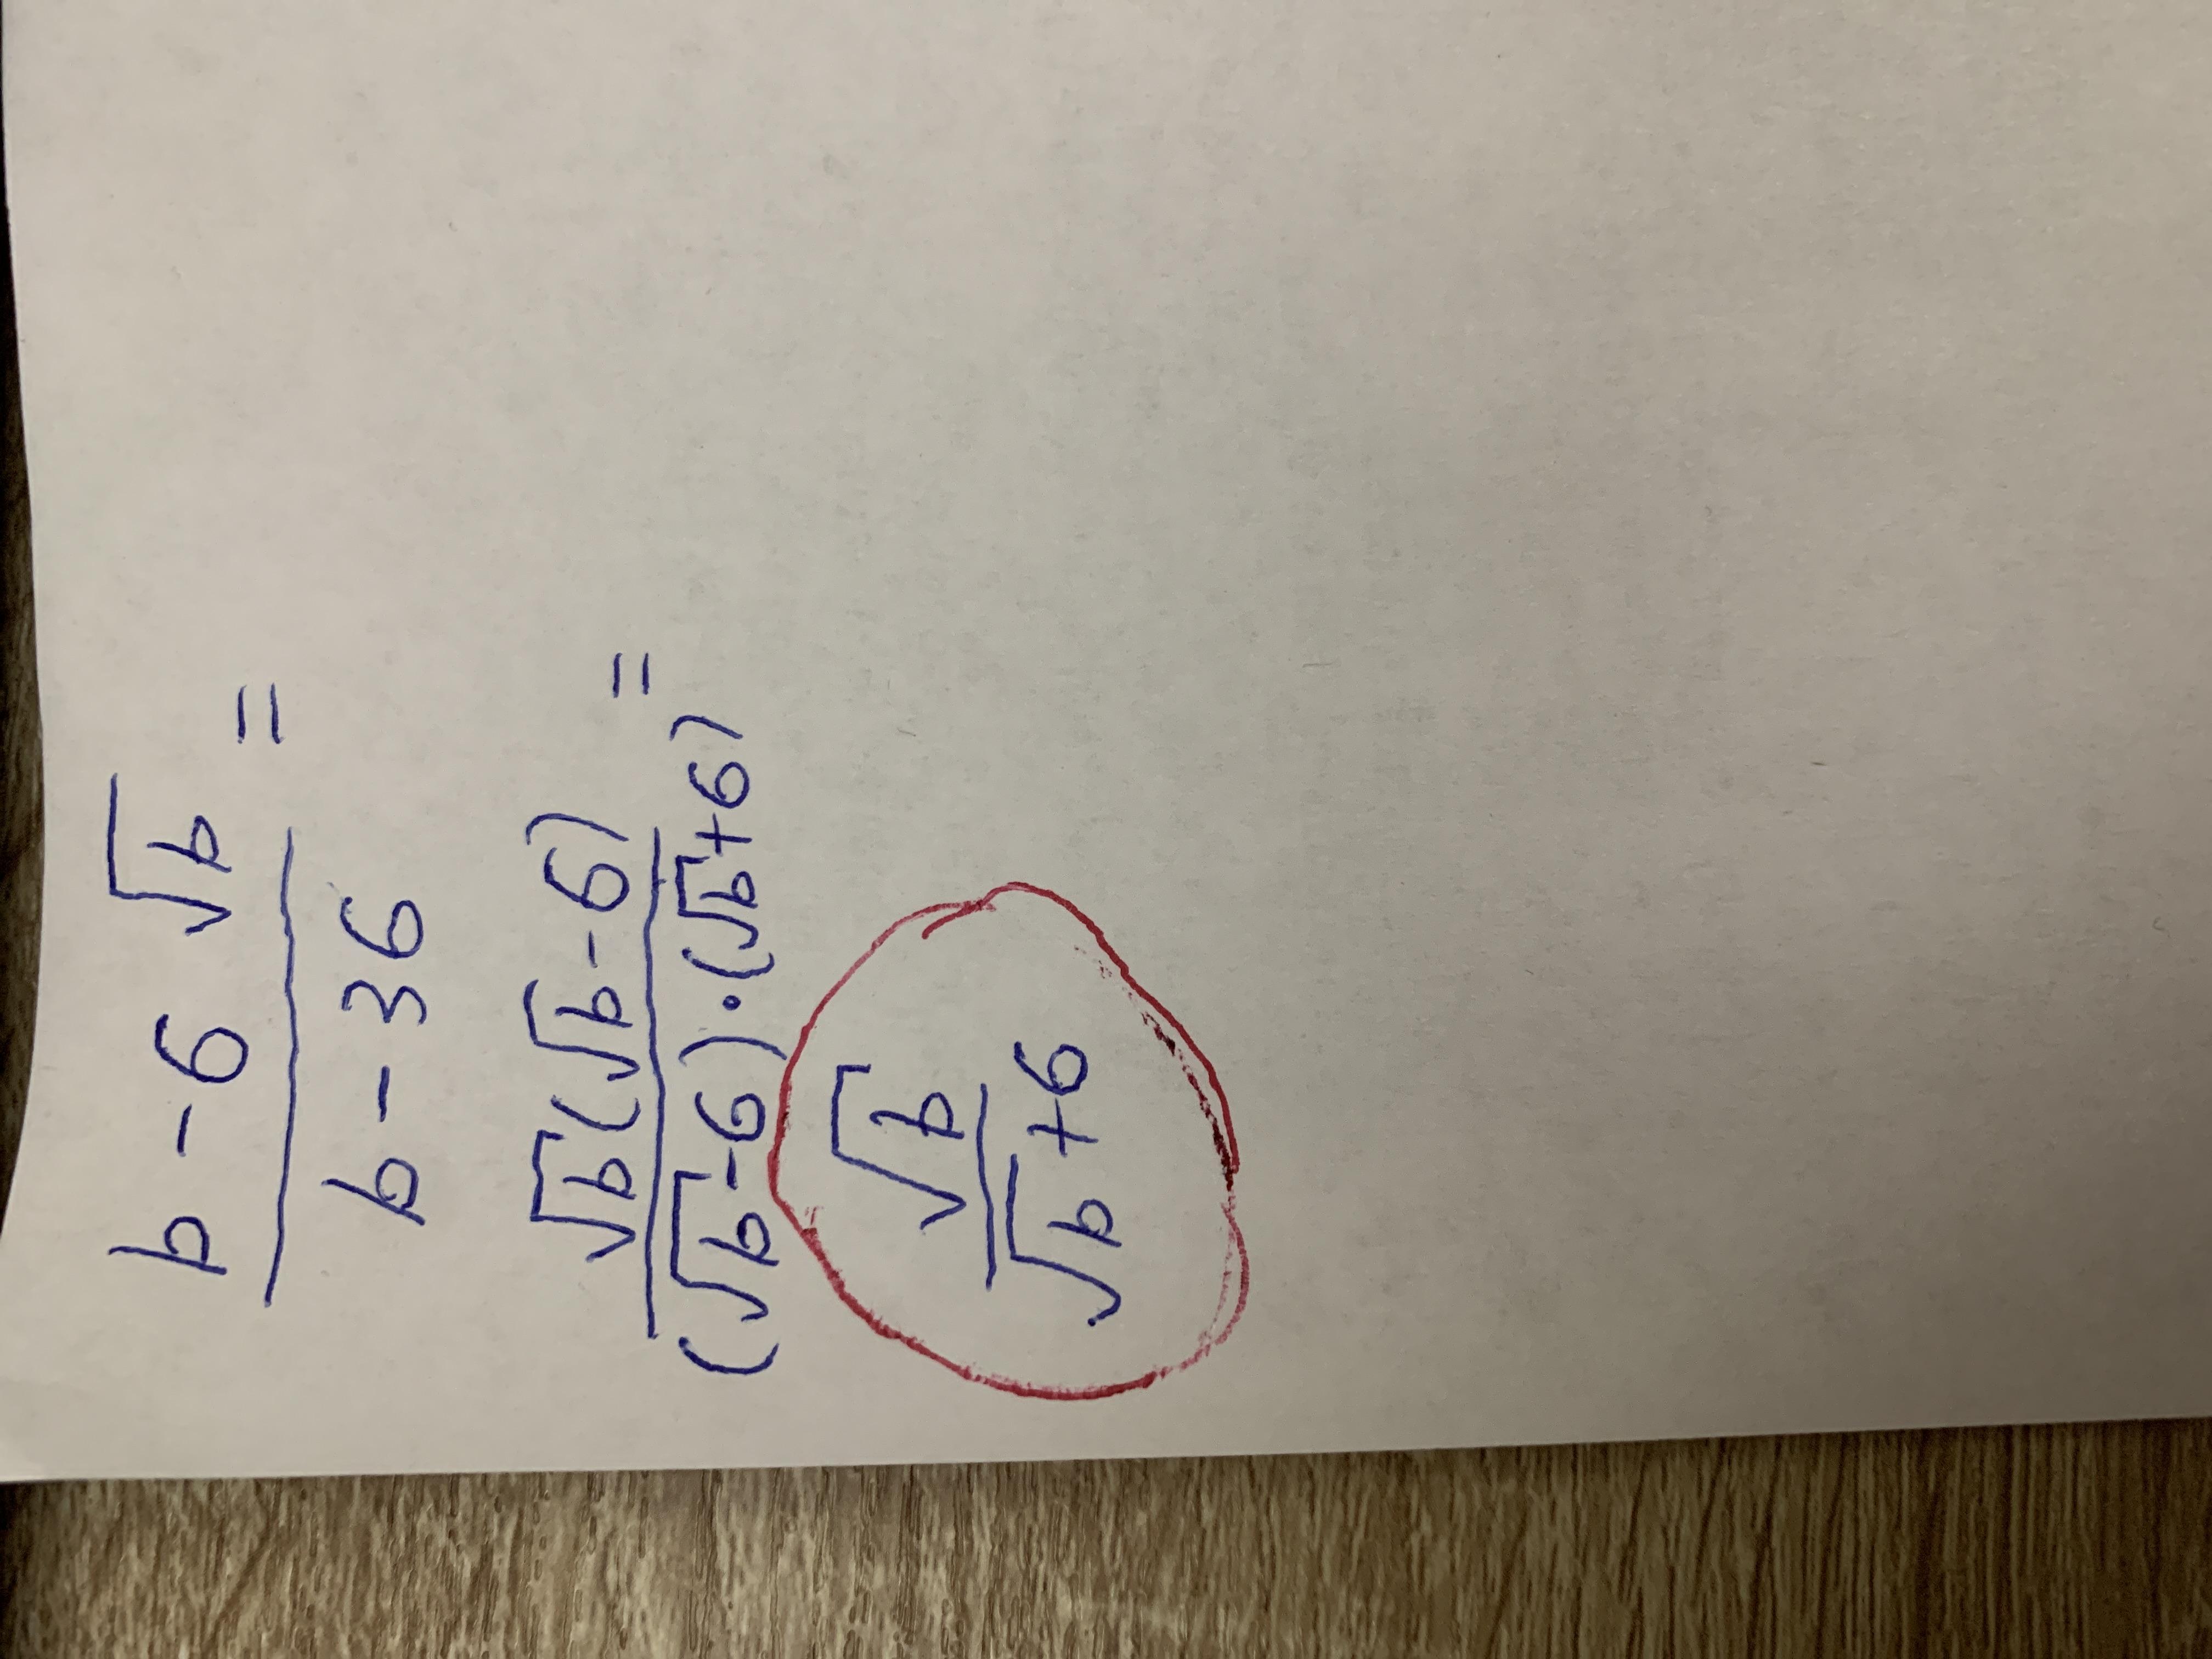 b - 6 √b =
b - 36
√b(√b-6) =
(√b-6)·(√b+6)
√b
√b+6